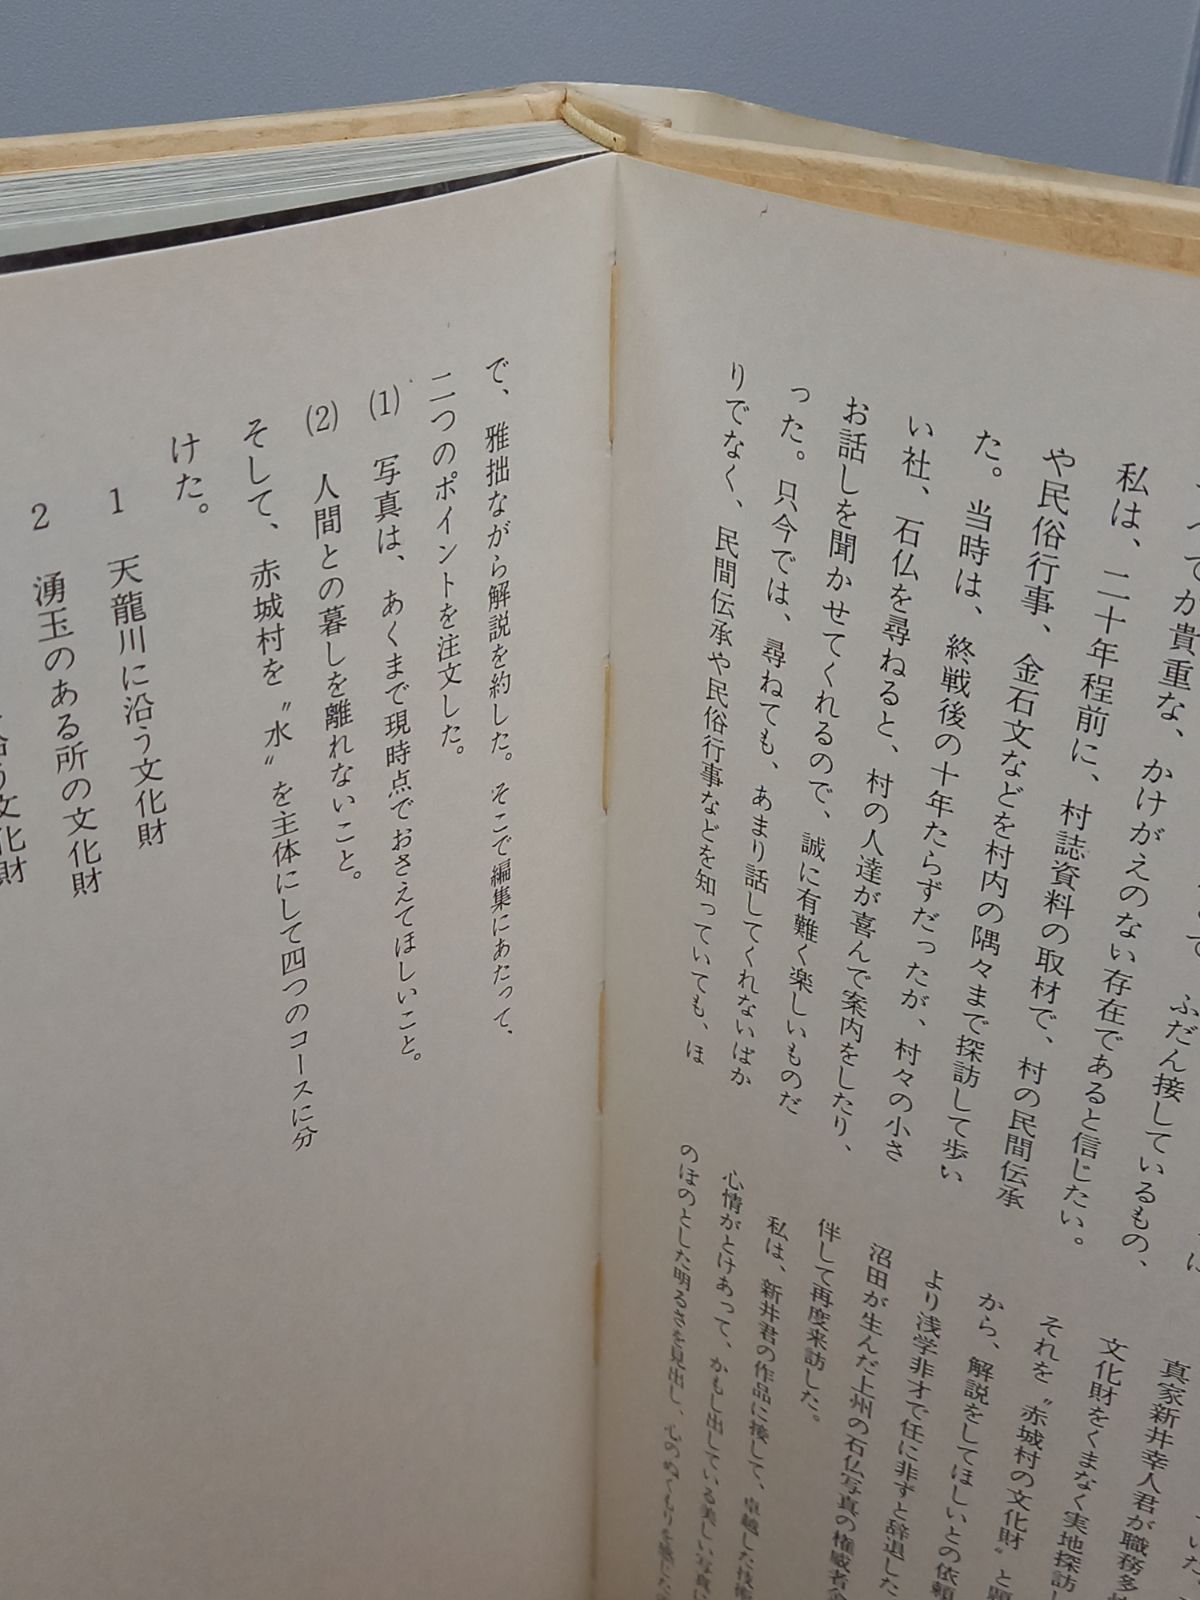 てか貴重な、かけがえのない存在であると信じたい。
私は、二十年程前に、村誌資料の取材で、村の民間伝承
や民俗行事、金石文などを村内の隅々まで探訪して歩い
た。当時は、終戦後の十年たらずだったが、村々の小さ
い社、石仏を尋ねると、村の人達が喜んで案内をしたり、
お話しを聞かせてくれるので、誠に有難く楽しいものだ
った。只今では、尋ねても、あまり話してくれないばか
りでなく、民間伝承や民俗行事などを知っていても、ほ
真家新井幸人君が職務多
文化財をくまなく実地探訪し
それを〝赤城村の文化財〟と題
から、解説をしてほしいとの依頼
より浅学非才で任に非ずと辞退した
沼田が生んだ上州の石仏写真の権威者
伴して再度来訪した。
私は、新井君の作品に接して、卓越した技術
心情がとけあって、かもし出している美しい写真に
のほのとした明るさを見出し、心のぬくもりを感じた
で、雅拙ながら解説を約した。そこで編集にあたって、
二つのポイントを注文した。
(1) 写真は、あくまで現時点でおさえてほしいこと。
(2) 人間との暮しを離れないこと。
そして、赤城村を〝水〟を主体にして四つのコースに分
けた。
1 天龍川に沿う文化財
2 湧玉のある所の文化財
沿う文化財